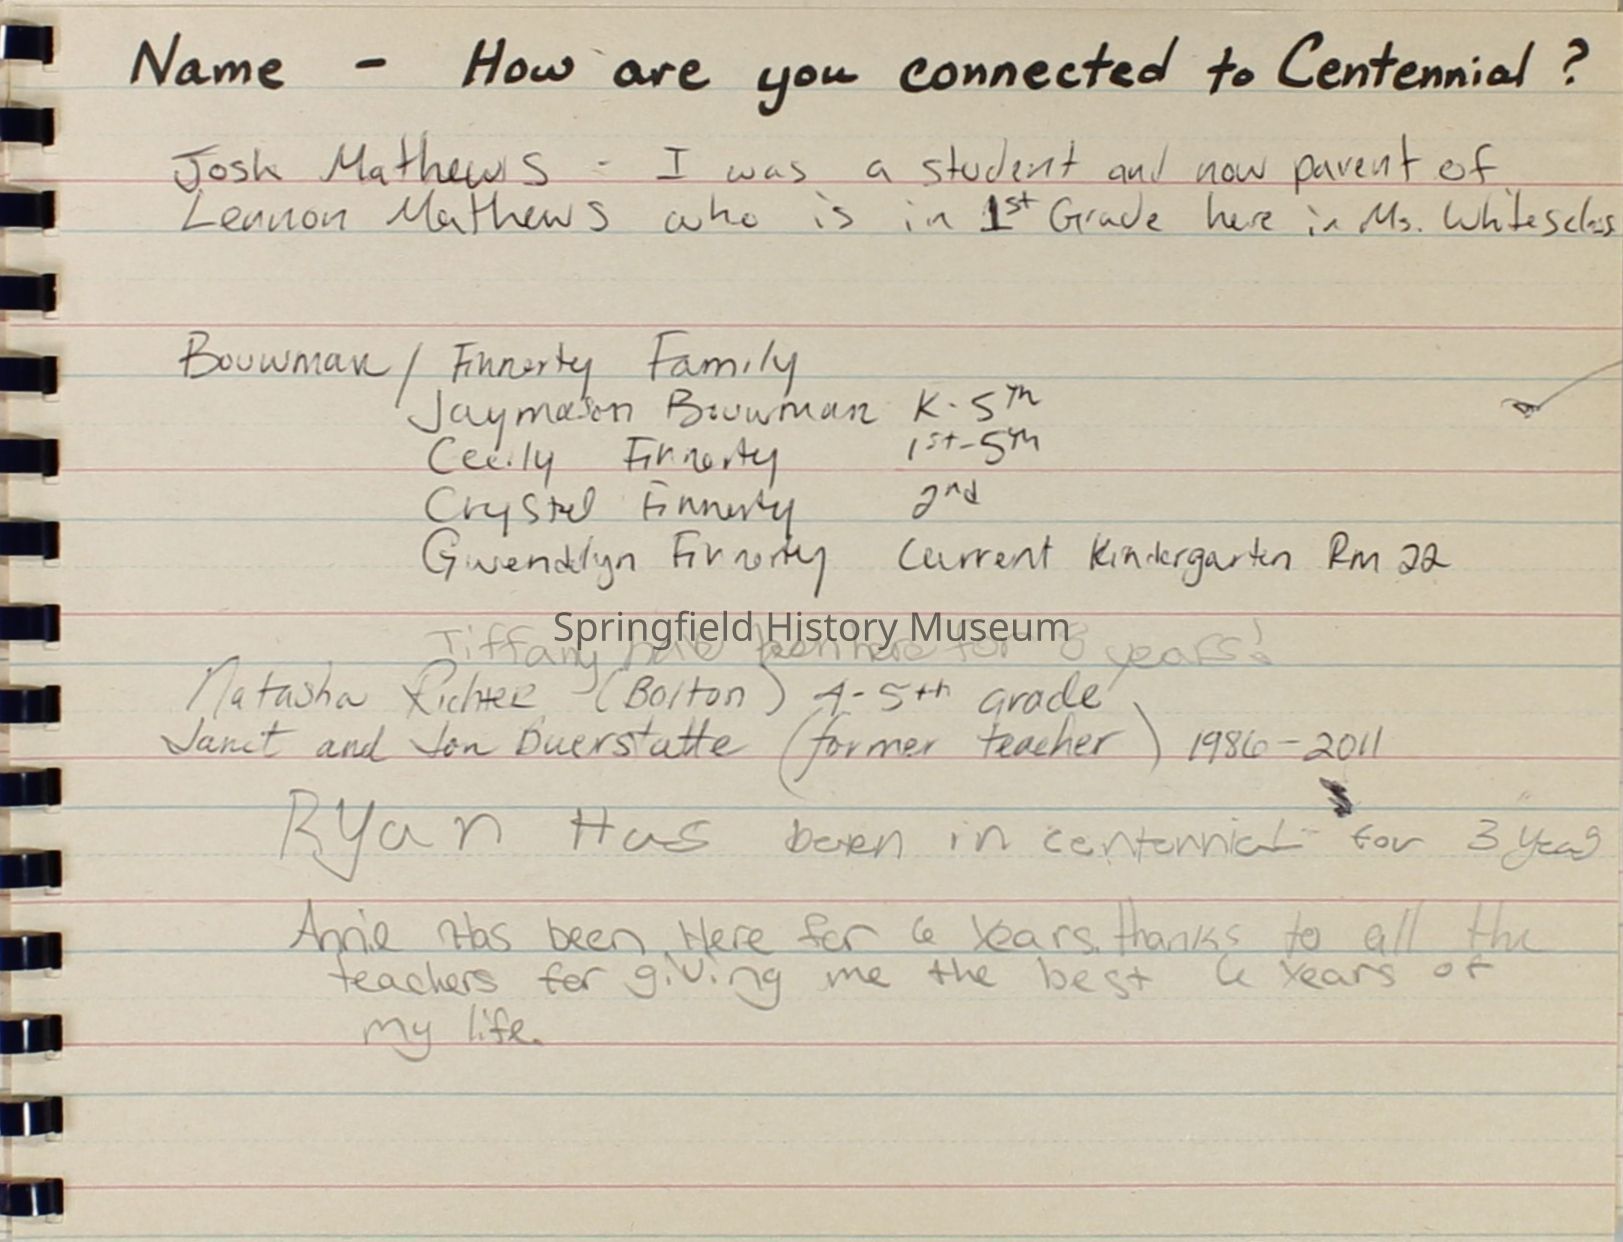 Name - How are you connected to Centennial?
Josh Mathews - I was a student and now parent of
Lennon Mathews who is in 1st Grade here in Ms. Whites class
Bouwman / Finnerty Family
Jaymason Bouwman K-5th
Cecily Finnerty 1st-5th
Crystal Finnerty 2nd
Gwendolyn Finnerty Current Kindergarten Rm 22
Springfield History Museum
Tiffany for years!
Natasha Richter (Bolton) 4-5th grade
Janet and Jon Duerstatte (former teacher) 1986-2011
RYan Has been in centennial for 3 Year
Annie Has been Here for 6 Years. thanks to all the
teachers for giving me the best 6 Years of
my life.